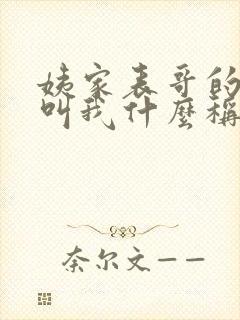 姨家表哥的
叫我什麼稱
奈尔文——